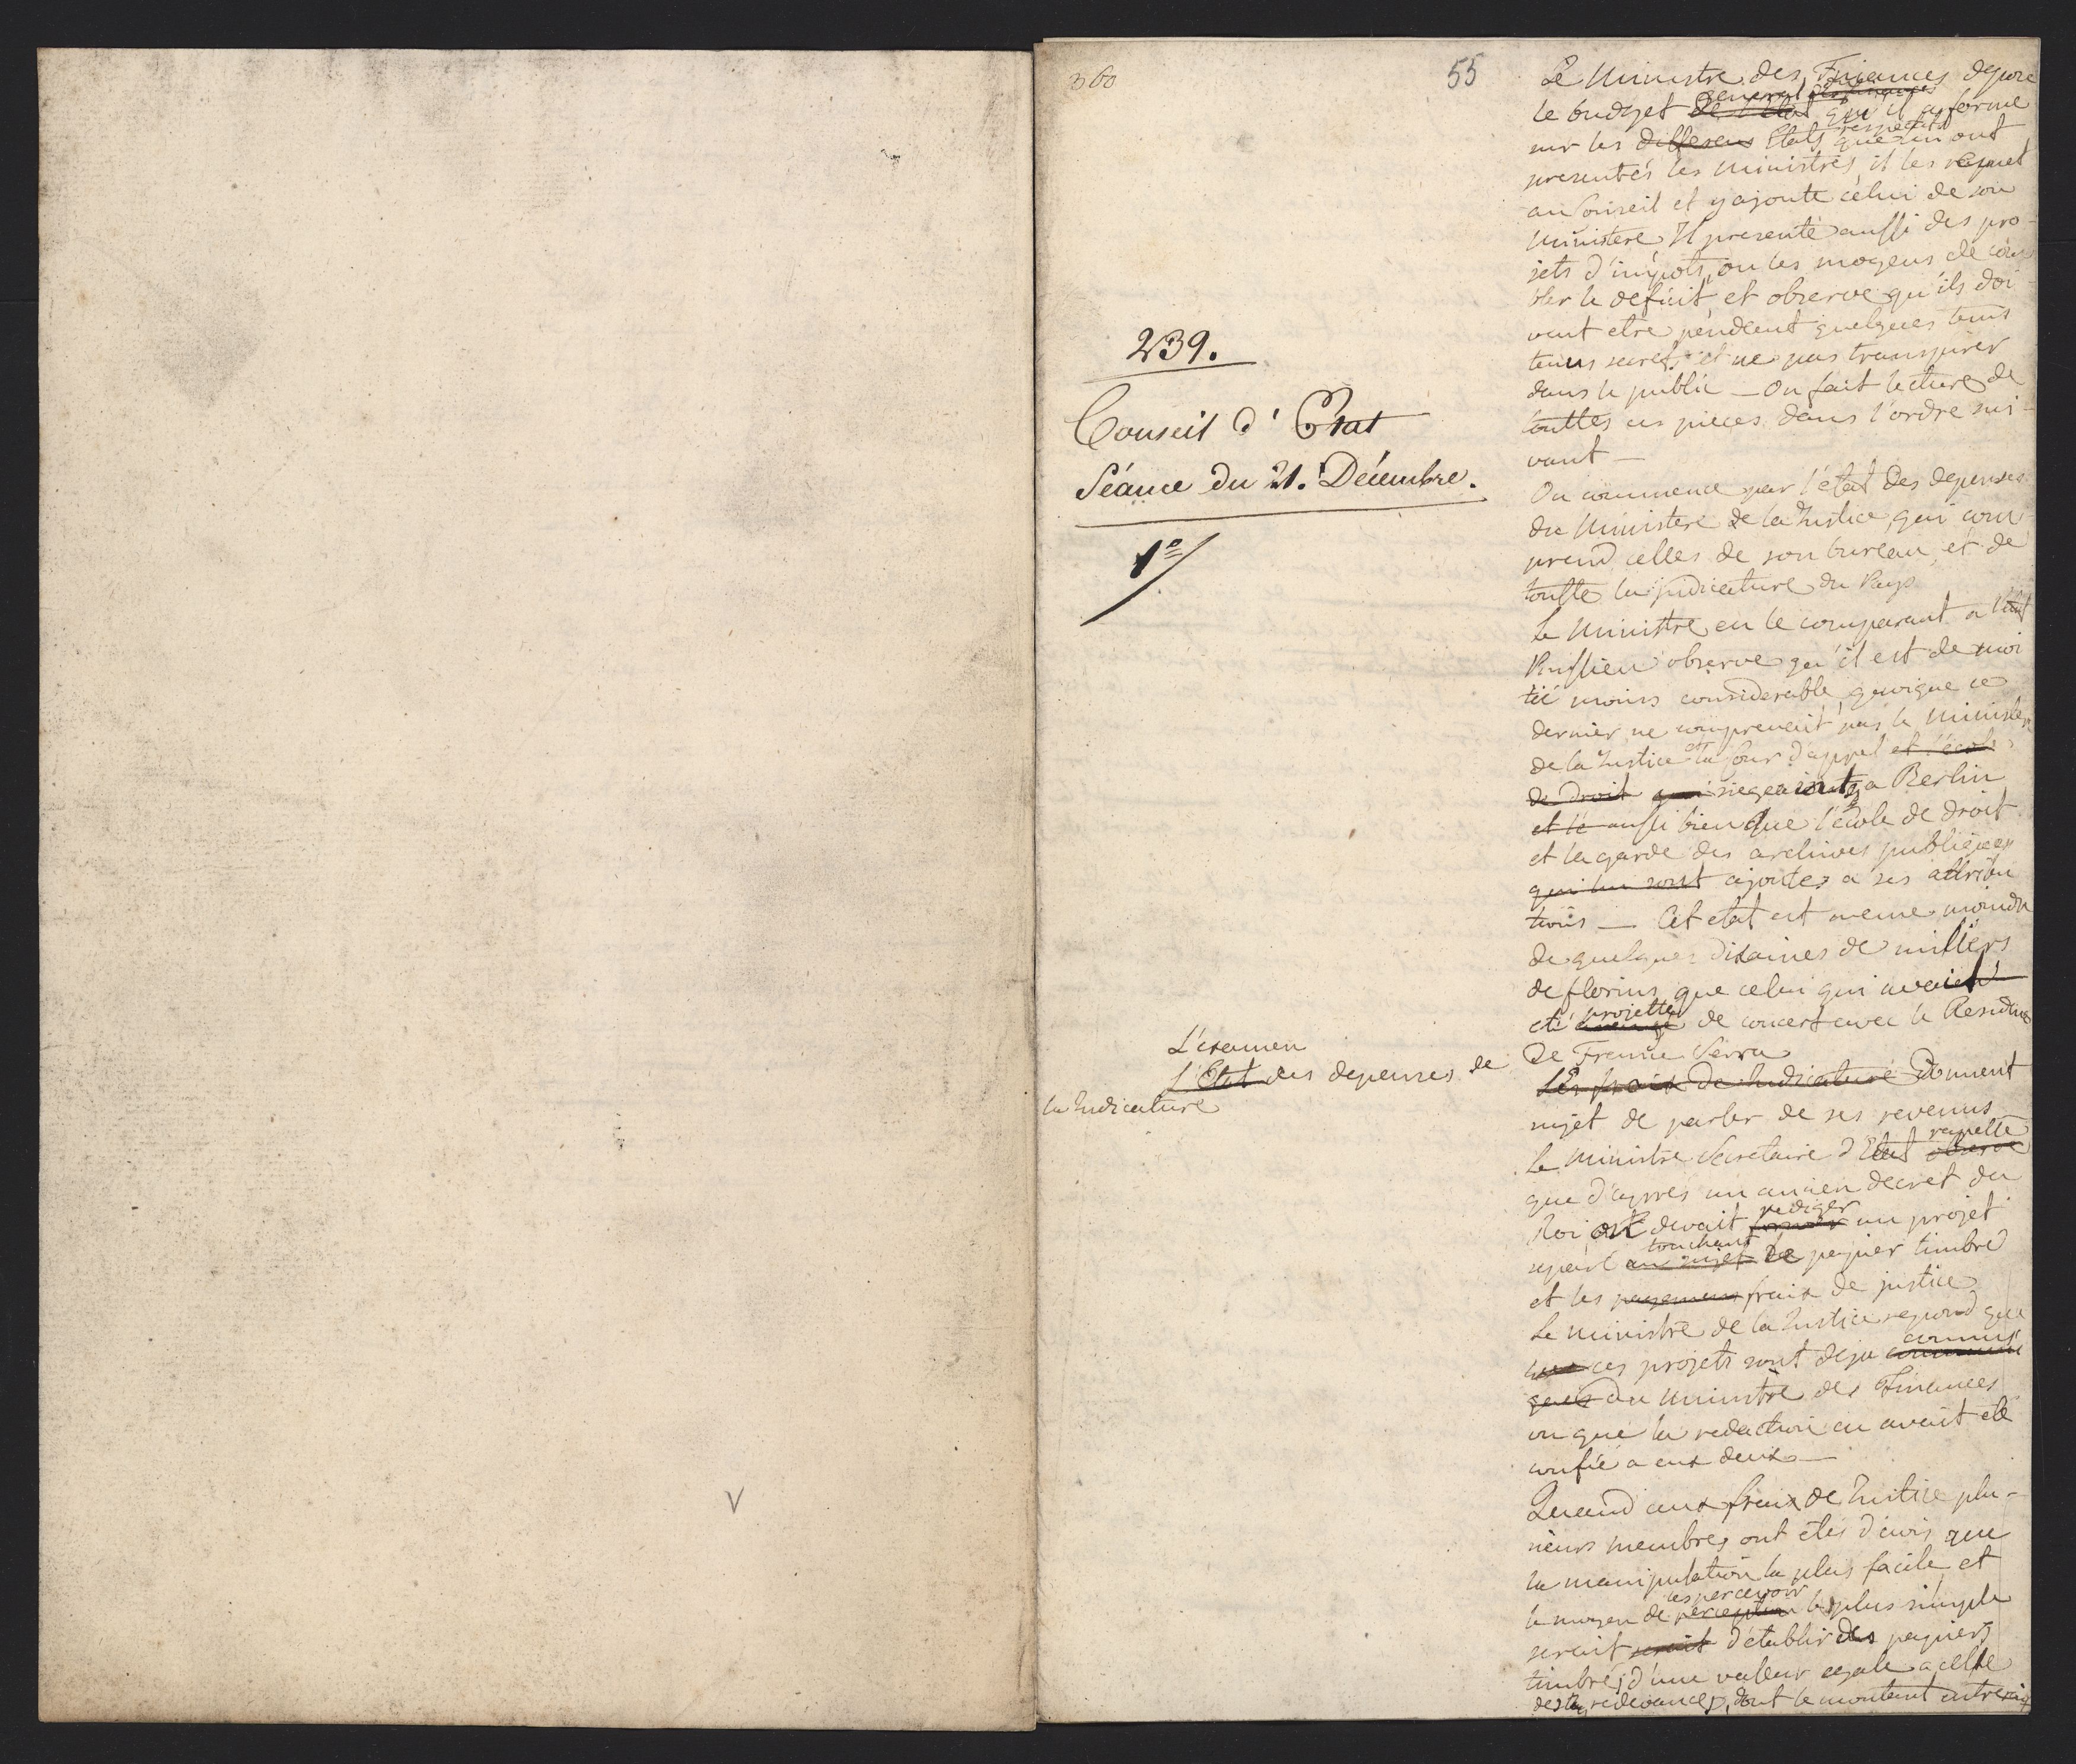 360
55
239.
Conseil d'Etat
Séance du 21. Décembre.
1º/
L'examen
L'Etat des depenses de
la Judicature
Le Ministre des Finances depose
general des finances
le budget de l'Etat qu'il a formé
respectifs
sur les differens Etats que lui ont
presentés les Ministres, il les remet
au Conseil et y ajoute celui de son
Ministere Il presente aussi des pro-
jets d'impots, ou les moyens de com
bler le deficit, et observe qu'ils doi-
vent etre pendent quelques tems
tenus secrets et ne pas transpirer
dans le public — On fait lecture de
touttes ces pieces dans l'ordre sui-
vant —
On commence par l'etat des depenses
du Ministere de la Justice, qui com-
prend celles de son bureau, et de
toutte la judicature du Pays
Le Ministre en le comparant a l'état
Prussien observe qu'il est de moi
tié moins considerable, quoique ce
dernier ne comprenait pas le Ministere
de la Justice et la Cour d'appel et l'école
de droit qui siegeaient a Berlin
et le aussi bien que l'école de droit
et la garde des archives publiques
qui lui sont ajoutés a ses attribu
tions — Cet etat est meme moindre
de quelques dixaines de milliers
de florins que celui qui avait
projetté
eté arrangé de concert avec le Resident
De France Serra
Les frais de Judicature Donnent
sujet de parler de ses revenus
rapelle
Le Ministre Secretaire d'Etat observe
que d'apres un ancien decret du
rediger
Roi on devait former un projet
touchant
separé au sujet de papier timbré
et les payemens frais de justice
Le Ministre de la Justice repond que
connus
que ces projets sont deja communi
qués au Ministre des Finances
vu que la redaction en avait eté
confié a eux deux —
Quand aux frais de Justice plu-
sieurs membres ont étés d'avis que
la manipulation la plus facile et
les percevoir
le moyen de perception le plus simple
serait serait d'établir des papiers
timbrés d'une valeur egale a celle
des redevances, dont le montent entre